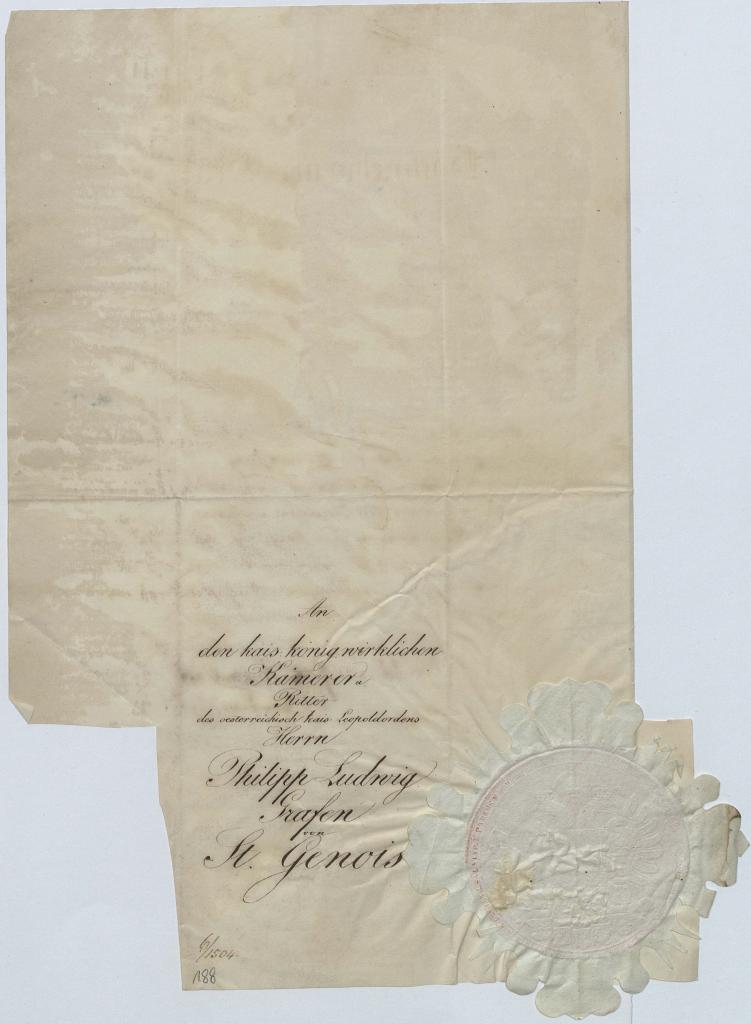 An
den kais. könig wirklichen
Kämerer u.
Ritter
des oesterreichisch kais. Leopoldordens
Herrn
Philipp Ludwig
Grafen
von
St. Genois
/1504.
188